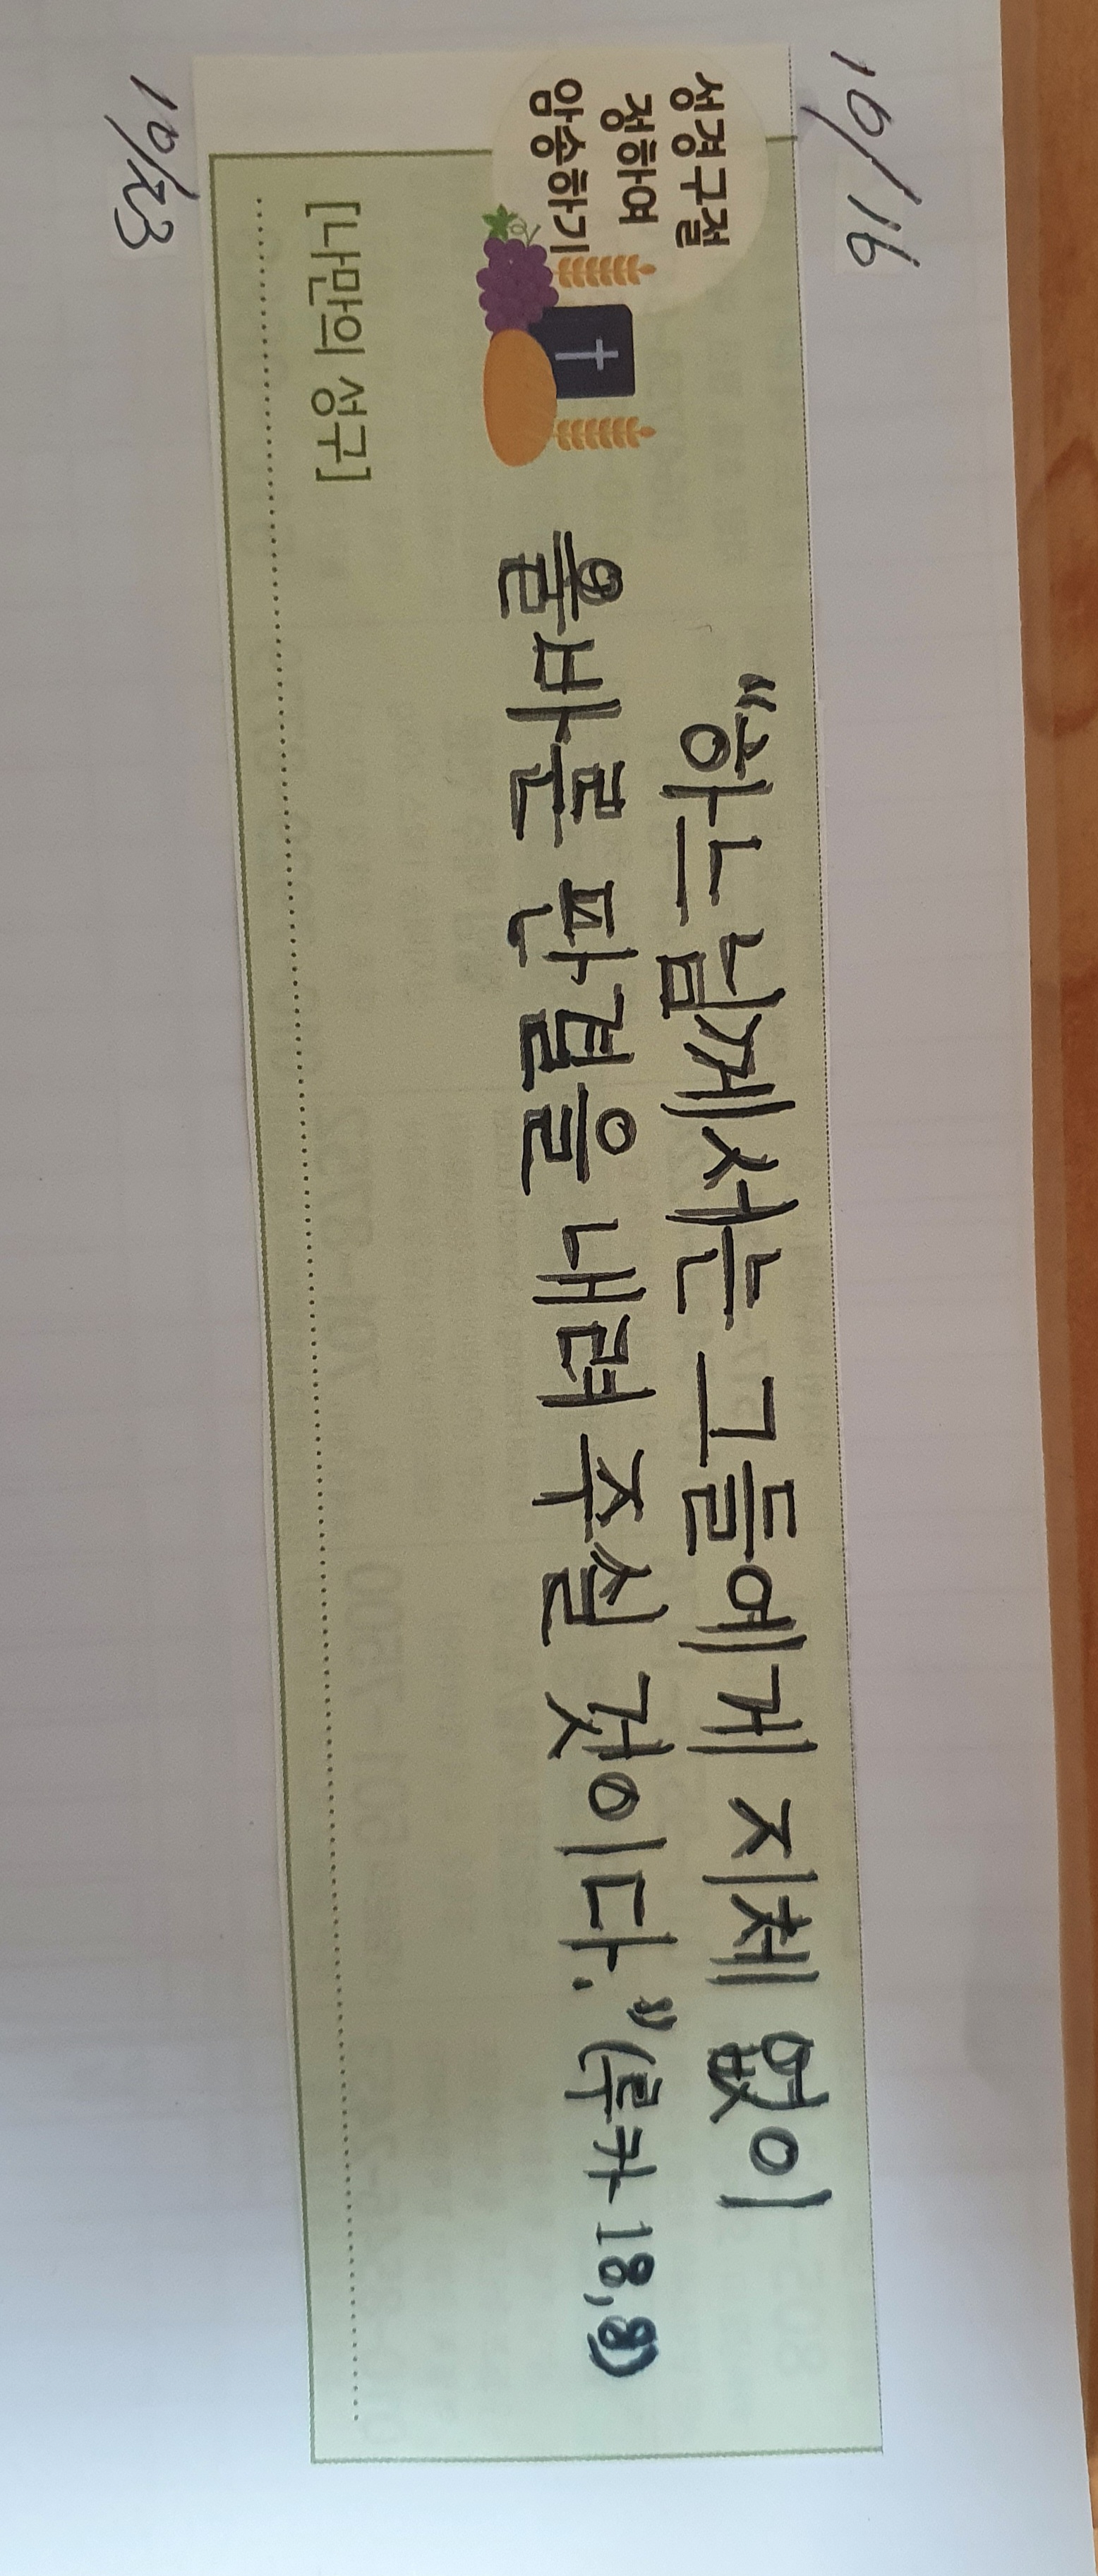 10/16
성경구절
정하여
암송하기
"하느님께서는 그들에게 지체 없이
올바른 판결을 내려 주실 것이다." (루카 18,8)
[나만의 성구]
10/23